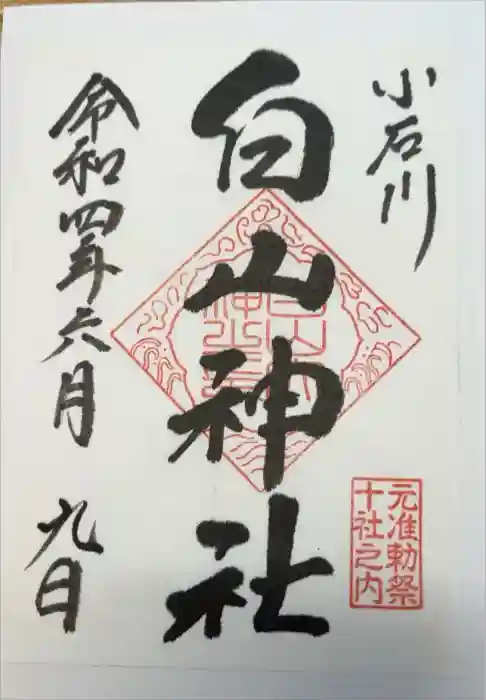 小石川
白山神社
元准勅祭
十社之内
令和四年六月九日